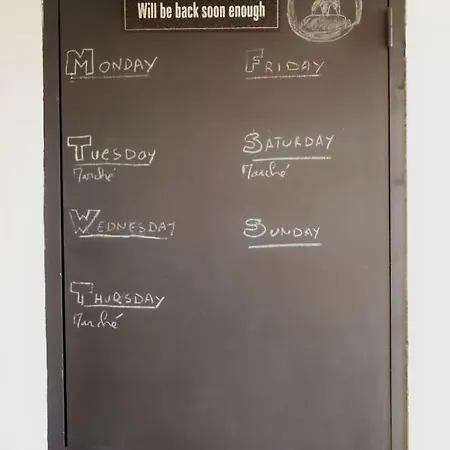 Will be back soon enough
MONDAY
TUESDAY
Marché
WEDNESDAY
THURSDAY
Marché
FRIDAY
SATURDAY
Marché
SUNDAY